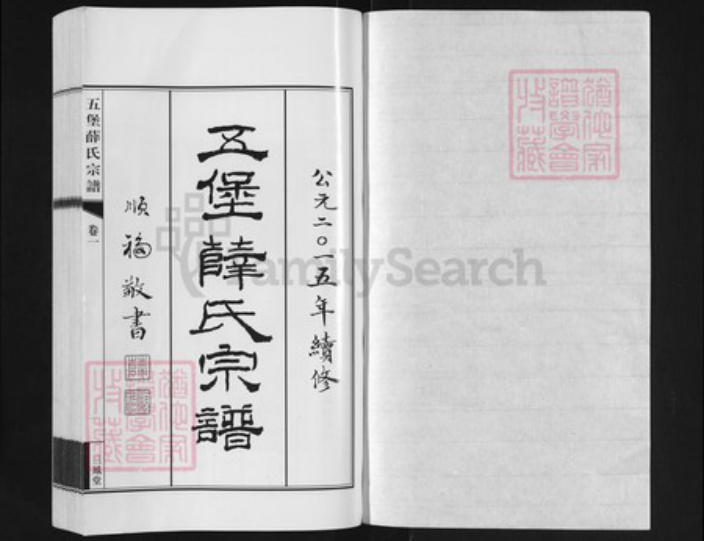 公元二〇一五年續修
五堡薛氏宗譜
順福敬書
五堡薛氏宗譜
卷一
FamilySearch